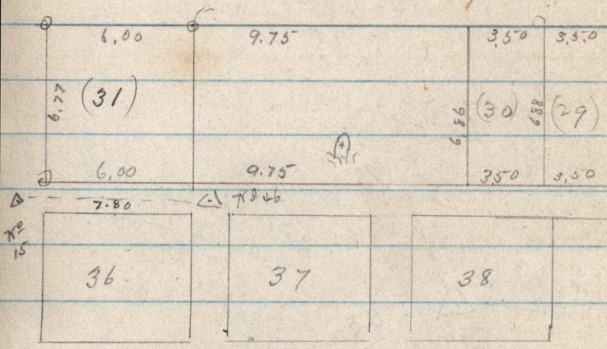 6,00 9.75 3,50 3,50
6,77 (31) 6,86 (30) 6,88 (29)
6,00 9.75 3,50 3,50
7.80 No
No 15
36 37 38